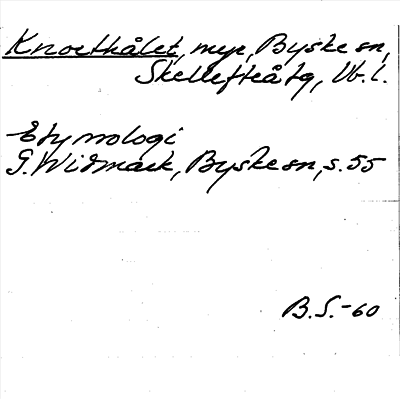 Knoethålet, myr, Byske sn,
Skellefteå tg, Vb. l.
Etymologi
G. Widmark, Byske sn, s. 55
B. S. -60